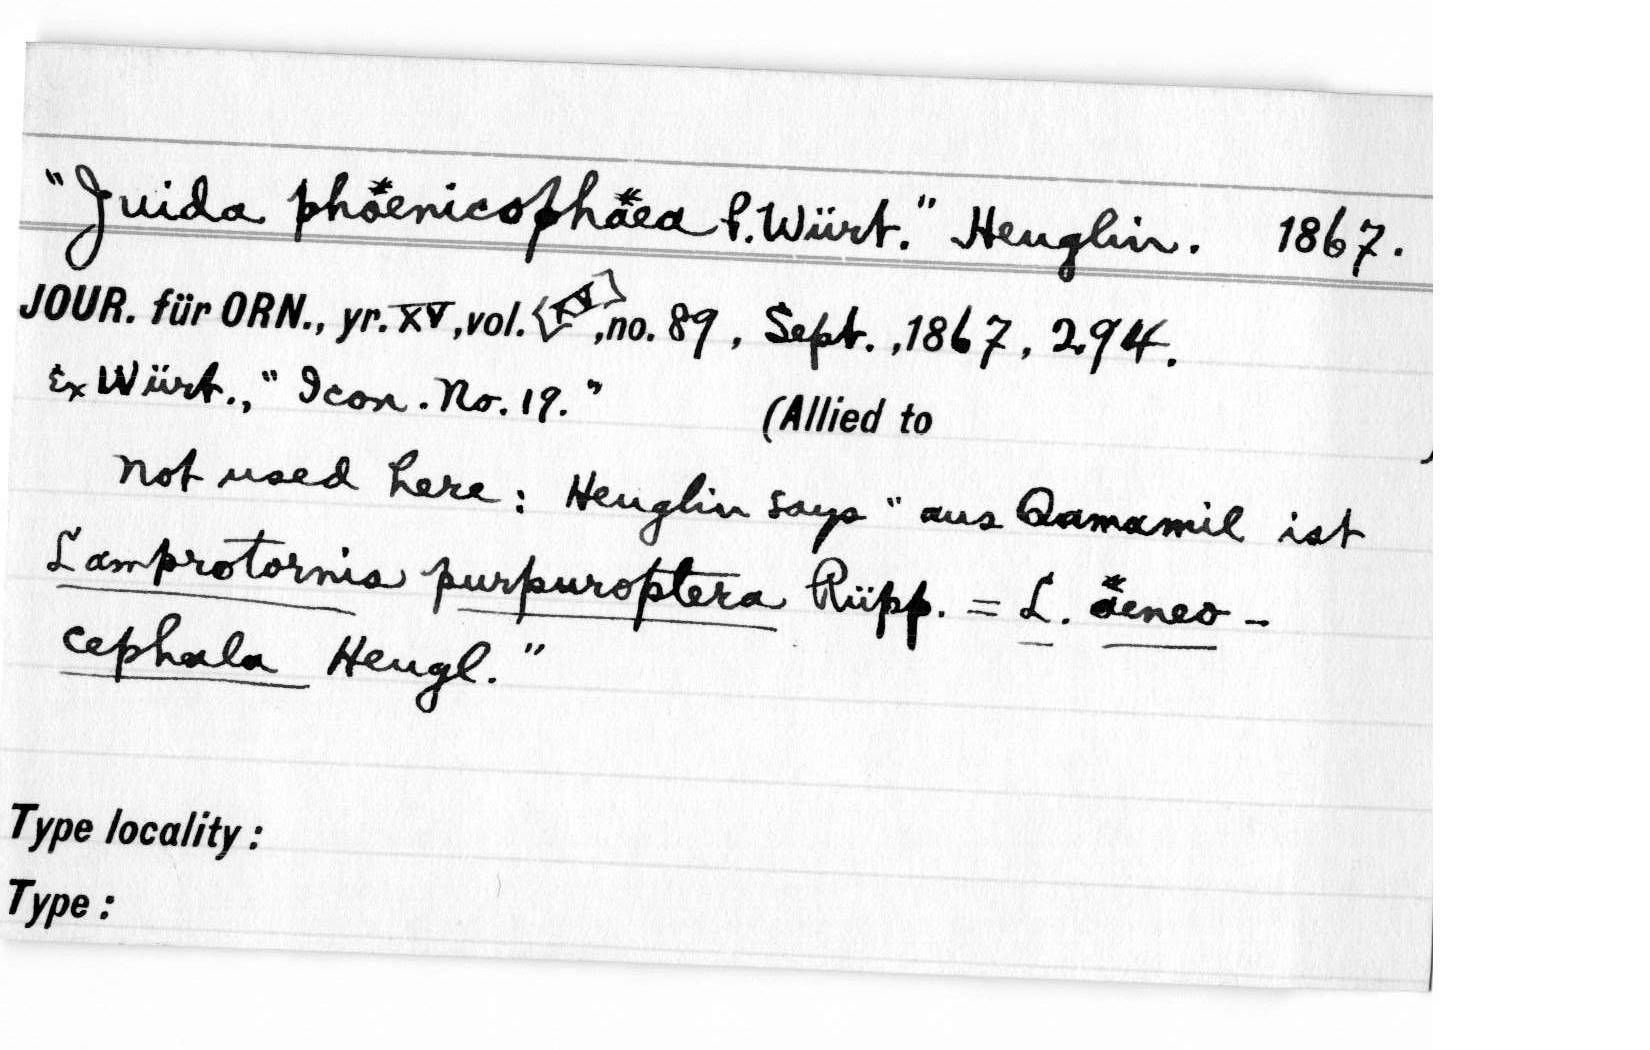 "Juida phöenicophäea P. Würt." Heuglin. 1867.
JOUR. für ORN., yr. XV, vol. <XV>, no. 89, Sept., 1867, 294.
Ex Würt., "Icon. No. 19." (Allied to )
Not used here: Heuglin says "aus Qamamil ist
Lamprotornis purpuroptera Rüpp. = L. äeneo-
cephala Heugl."
Type locality:
Type: